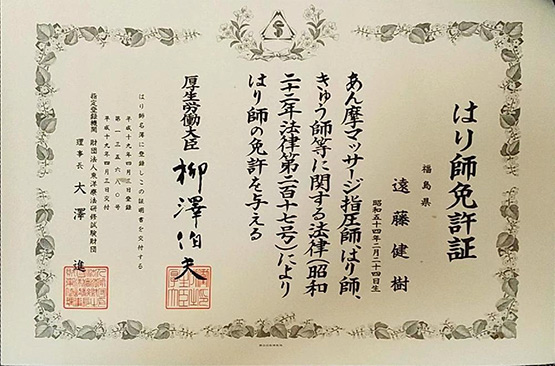 はり師免許証
福島県
遠藤健樹
昭和五十四年二月二十四日生
あん摩マッサージ指圧師、はり師、
きゅう師等に関する法律(昭和
二十二年法律第二百十七号)により
はり師の免許を与える
厚生労働大臣 柳澤伯夫
はり師名簿に登録しこの証明書を交付する
平成十九年四月三日登録
第一三五六八〇号
平成十九年四月三日交付
指定登録機関 財団法人東洋療法研修試験財団
理事長 大澤進